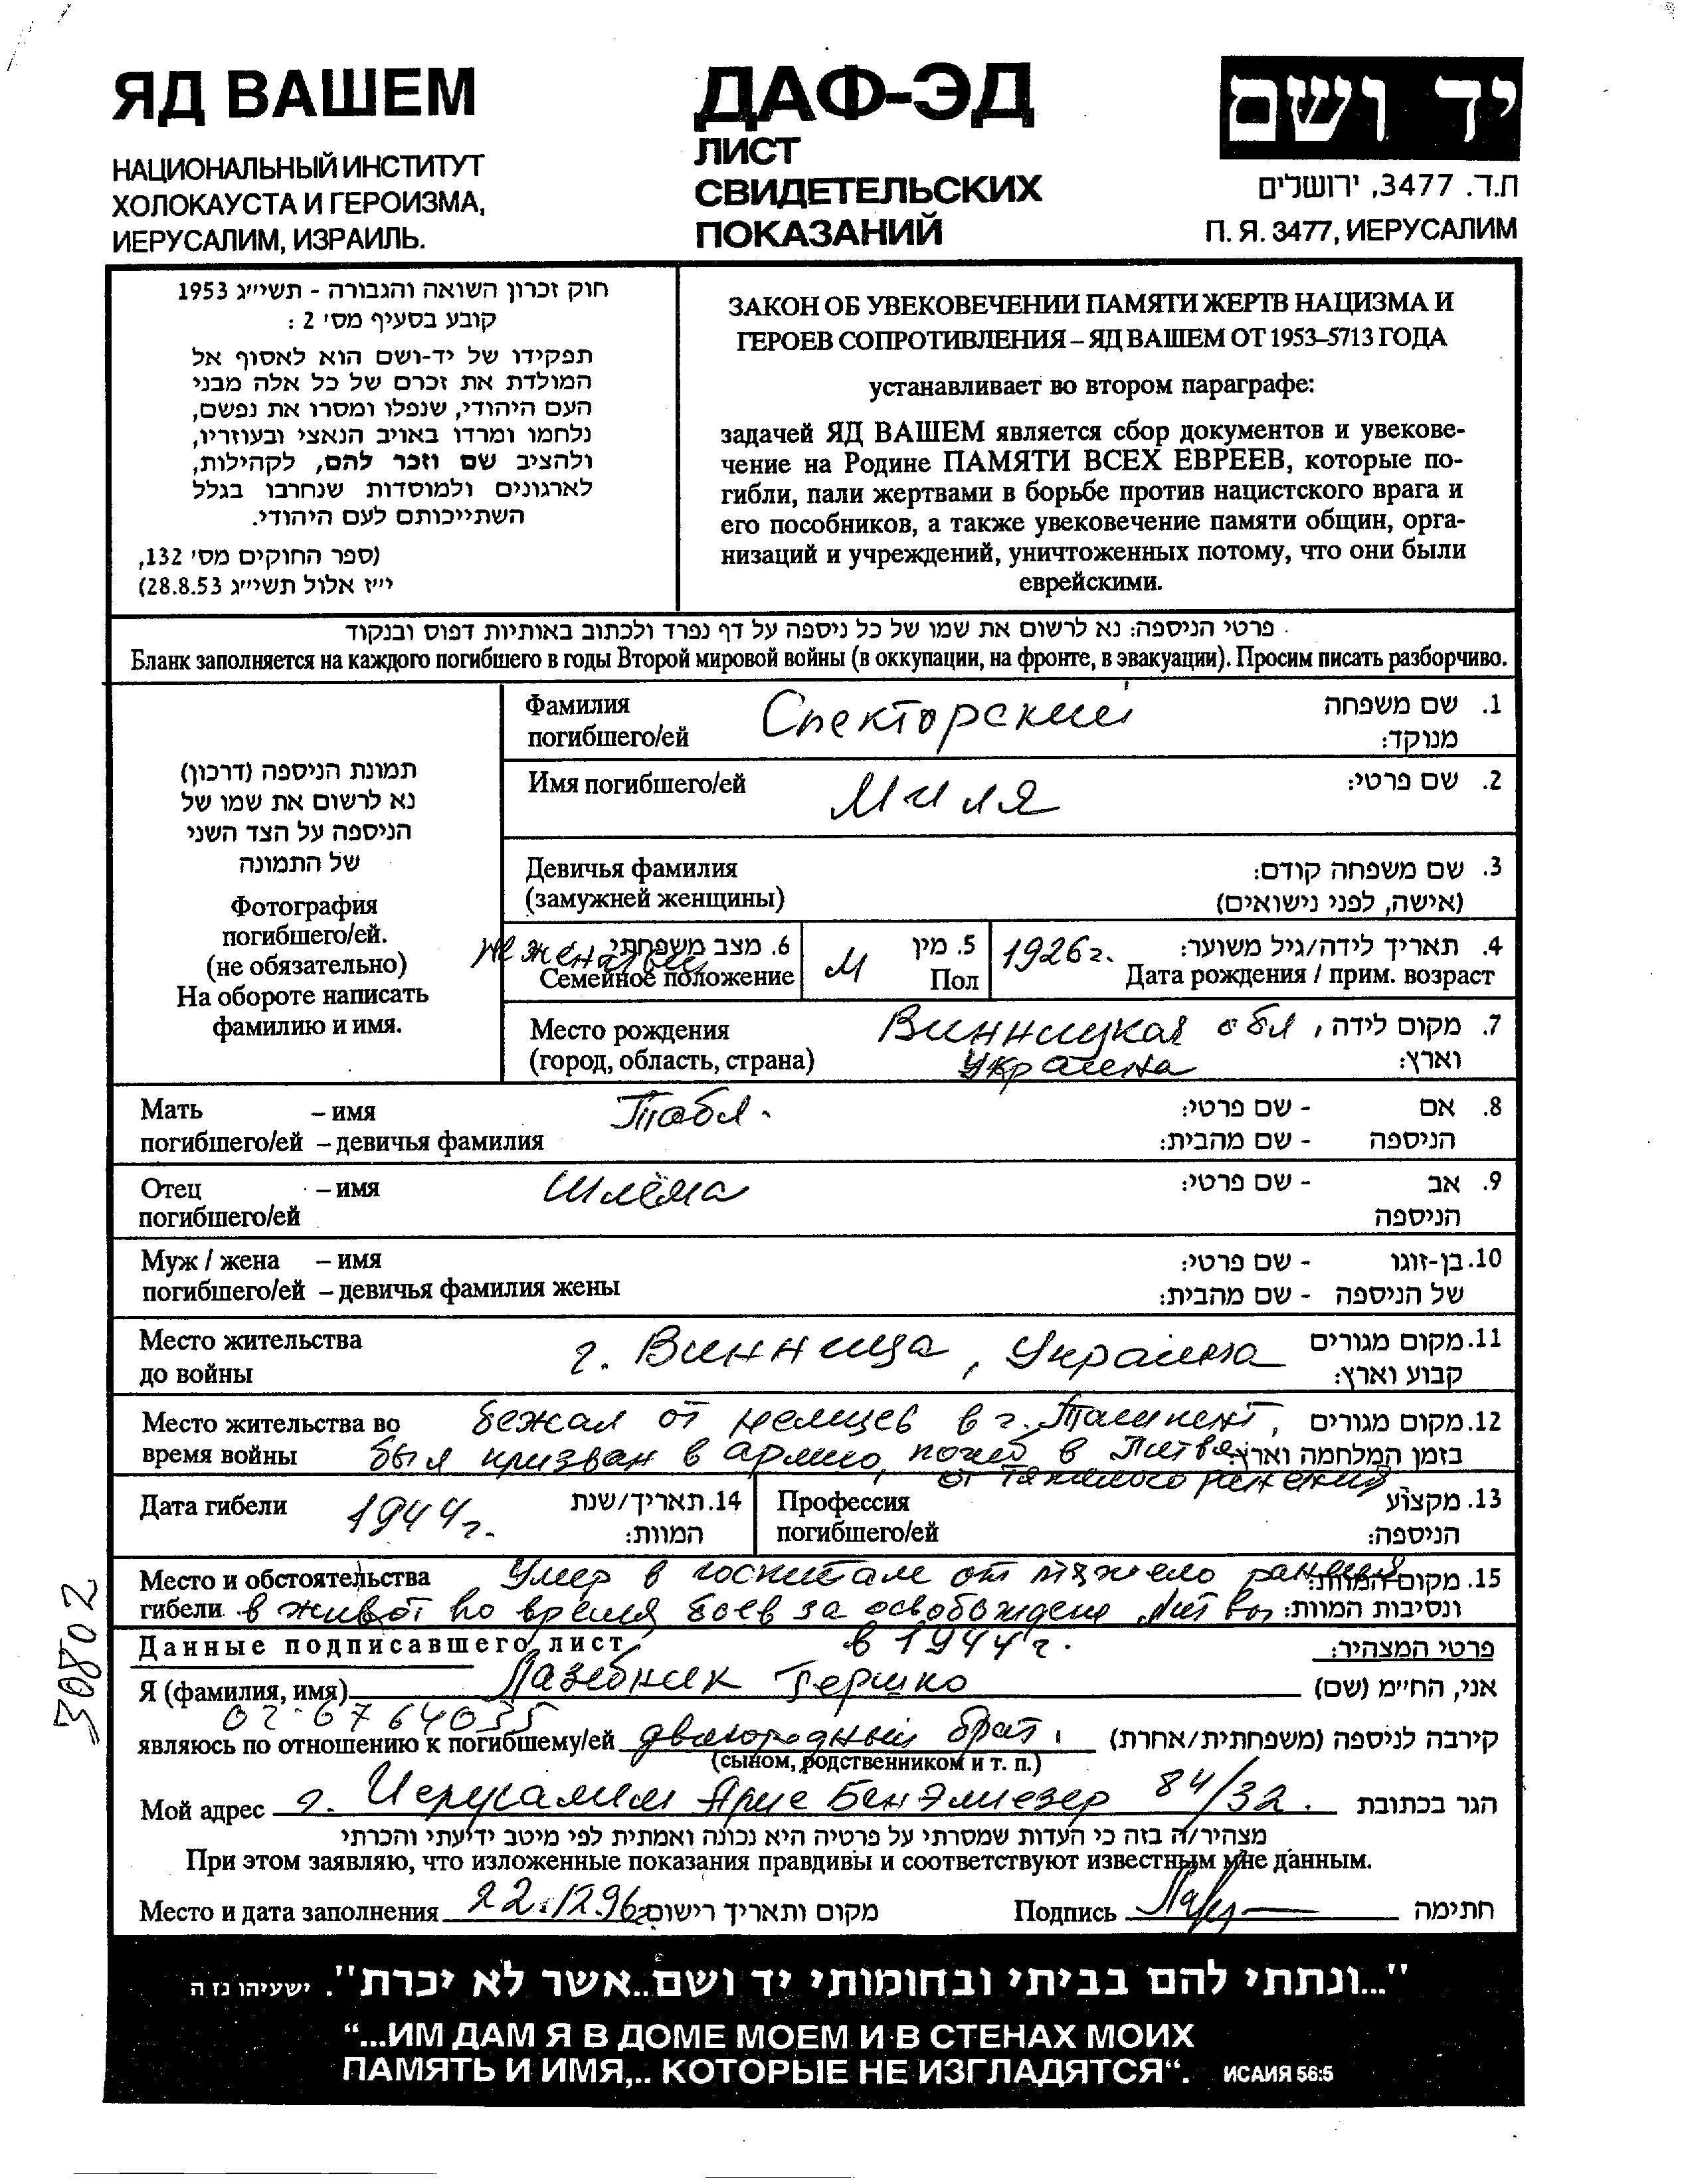 ЯД ВАШЕМ
НАЦИОНАЛЬНЫЙ ИНСТИТУТ
ХОЛОКАУСТА И ГЕРОИЗМА,
ИЕРУСАЛИМ, ИЗРАИЛЬ.
ДАФ-ЭД
ЛИСТ
СВИДЕТЕЛЬСКИХ
ПОКАЗАНИЙ
יד ושם
ת.ד. 3477, ירושלים
П. Я. 3477, ИЕРУСАЛИМ
חוק זכרון השואה והגבורה - תשי״ג 1953
קובע בסעיף מס׳ 2 :
תפקידו של יד-ושם הוא לאסוף אל
המולדת את זכרם של כל אלה מבני
העם היהודי, שנפלו ומסרו את נפשם,
נלחמו ומרדו באויב הנאצי ובעוזריו,
ולהציב שם וזכר להם, לקהילות,
לארגונים ולמוסדות שנחרבו בגלל
השתייכותם לעם היהודי.
(ספר החוקים מס׳ 132,
י״ז אלול תשי״ג 28.8.53)
ЗАКОН ОБ УВЕКОВЕЧЕНИИ ПАМЯТИ ЖЕРТВ НАЦИЗМА И
ГЕРОЕВ СОПРОТИВЛЕНИЯ – ЯД ВАШЕМ ОТ 1953–5713 ГОДА
устанавливает во втором параграфе:
задачей ЯД ВАШЕМ является сбор документов и увекове-
чение на Родине ПАМЯТИ ВСЕХ ЕВРЕЕВ, которые по-
гибли, пали жертвами в борьбе против нацистского врага и
его пособников, а также увековечение памяти общин, орга-
низаций и учреждений, уничтоженных потому, что они были
еврейскими.
פרטי הניספה: נא לרשום את שמו של כל ניספה על דף נפרד ולכתוב באותיות דפוס ובנקוד
Бланк заполняется на каждого погибшего в годы Второй мировой войны (в оккупации, на фронте, в эвакуации). Просим писать разборчиво.
תמונת הניספה (דרכון)
נא לרשום את שמו של
הניספה על הצד השני
של התמונה
Фотография
погибшего/ей.
(не обязательно)
На обороте написать
фамилию и имя.
Фамилия Спекторский 1. שם משפחה
погибшего/ей מנוקד:
Имя погибшего/ей Миля 2. שם פרטי:
Девичья фамилия 3. שם משפחה קודם:
(замужней женщины) (אישה, לפני נישואים)
не женатый 6. מצב משפחתי M 5. מין 1926 г. 4. תאריך לידה/גיל משוער:
Семейное положение Пол Дата рождения / прим. возраст
Место рождения Винницкая обл, 7. מקום לידה
(город, область, страна) Украина וארץ:
Мать – имя Табл. 8. אם - שם פרטי:
погибшего/ей – девичья фамилия הניספה - שם מהבית:
Отец – имя Шлёма 9. אב - שם פרטי:
погибшего/ей הניספה
Муж / жена – имя 10. בן-זוגו - שם פרטי:
погибшего/ей – девичья фамилия жены של הניספה - שם מהבית:
Место жительства г. Винница, Украина 11. מקום מגורים
до войны קבוע וארץ:
Место жительства во бежал от немцев в г. Ташкент, 12. מקום מגורים
время войны был призван в армию, погиб в Литве בזמן המלחמה וארץ:
от тяжелого ранения
Дата гибели 1944 г. 14. תאריך/שנת המוות: Профессия 13. מקצוע
погибшего/ей הניספה:
Место и обстоятельства Умер в госпитале от тяжело ранения 15. מקום המוות:
гибели в живот во время боев за освобождение Литвы ונסיבות המוות:
в 1944 г.
Данные подписавшего лист פרטי המצהיר:
Я (фамилия, имя) Лазебник Гершко אני, החי״מ (שם)
02-6764035
являюсь по отношению к погибшему/ей двоюродный брат קירבה לניספה (משפחתית/אחרת)
(сыном, родственником и т. п.)
Мой адрес г. Иерусалим Арие Бен Элиезер 84/32. הגר בכתובת
מצהיר/ה בזה כי העדות שמסרתי על פרטיה היא נכונה ואמתית לפי מיטב ידיעתי והכרתי
При этом заявляю, что изложенные показания правдивы и соответствуют известным мне данным.
Место и дата заполнения 22.12.96 г. מקום ותאריך רישום Подпись חתימה
30802
"...ונתתי להם בביתי ובחומותי יד ושם..אשר לא יכרת". ישעיהו נז ה
“...ИМ ДАМ Я В ДОМЕ МОЕМ И В СТЕНАХ МОИХ
ПАМЯТЬ И ИМЯ,.. КОТОРЫЕ НЕ ИЗГЛАДЯТСЯ“. ИСАИЯ 56:5